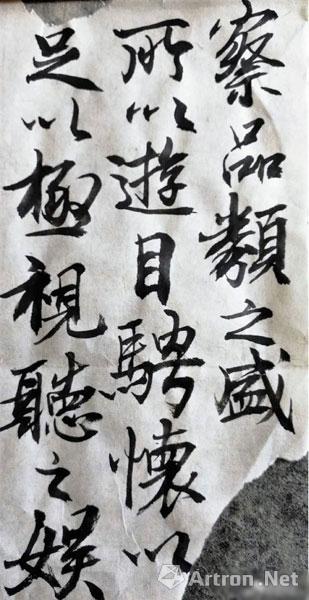 察品類之盛
所以遊目騁懷以
足以極視聽之娱
Artron.Net